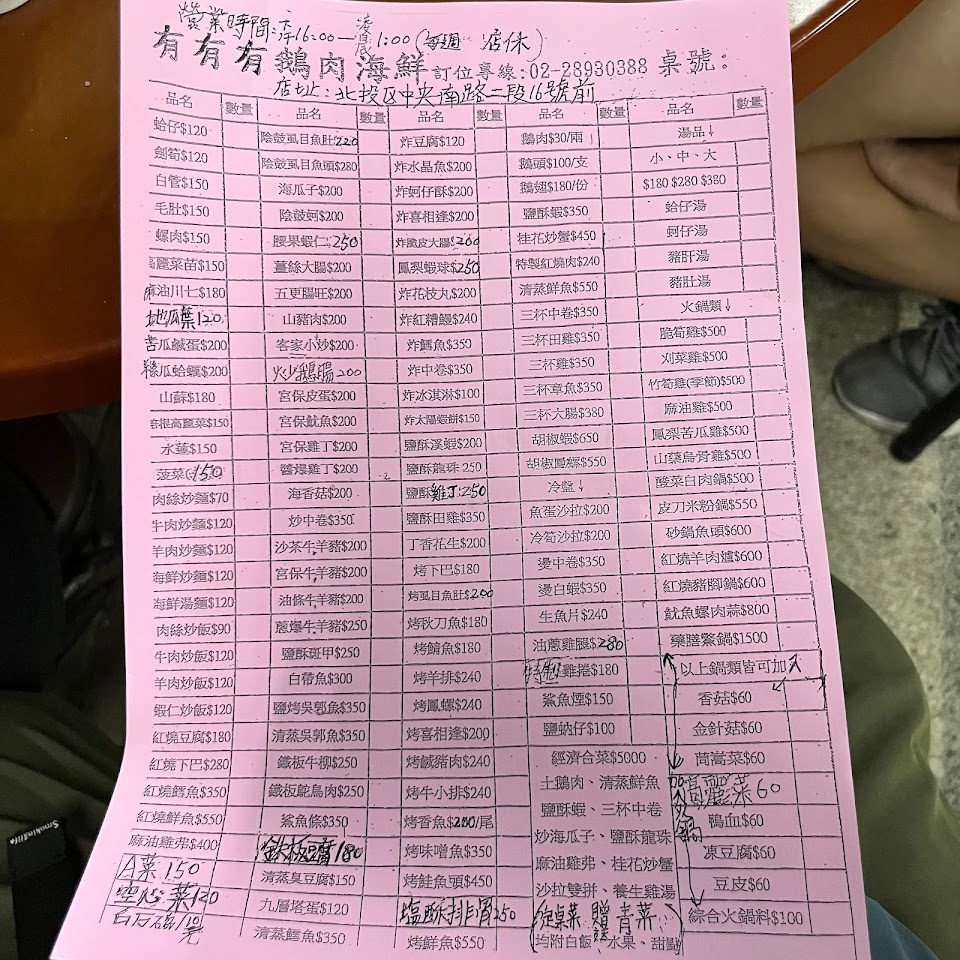 營業時間:下午16:00—凌晨1:00(每週 店休)
有有有鵝肉海鮮 訂位專線:02-28930388 桌號:
店址:北投区中央南路二段16號前
品名 數量 品名 數量 品名 數量 品名 數量 品名 數量
蛤仔$120
劍筍$120
白管$150
毛肚$150
螺肉$150
高麗菜苗$150
麻油川七$180
地瓜葉120
苦瓜鹹蛋$200
絲瓜蛤蠣$200
山蘇$180
培根高麗菜$150
水蓮$150
菠菜150
肉絲炒麵$70
牛肉炒麵$120
羊肉炒麵$120
海鮮炒麵$120
海鮮湯麵$120
肉絲炒飯$90
牛肉炒飯$120
羊肉炒飯$120
蝦仁炒飯$120
紅燒豆腐$180
紅燒下巴$280
紅燒鱈魚$350
紅燒鮮魚$550
麻油雞弗$400
A菜150
空心菜120
陰鼓虱目魚肚220
陰鼓虱目魚頭$280
海瓜子$200
陰鼓蚵$200
腰果蝦仁$250
薑絲大腸$200
五更腸旺$200
山豬肉$200
客家小炒$200
火炒鵝腸200
宮保皮蛋$200
宮保魷魚$200
宮保雞丁$200
醬爆雞丁$200
海香菇$200
炒中卷$350
沙茶牛.羊豬$200
宮保牛.羊豬$200
油條牛.羊豬$200
蔥爆牛.羊豬$250
鹽酥斑甲$250
白帶魚$300
鹽烤吳郭魚$350
清蒸吳郭魚$350
鐵板牛柳$250
鐵板鴕鳥肉$250
鯊魚條$350
鉄板豆腐180
清蒸臭豆腐$150
九層塔蛋$120
清蒸鱈魚$350
炸豆腐$120
炸水晶魚$200
炸蚵仔酥$200
炸喜相逢$200
炸脆皮大腸$200
鳳梨蝦球$250
炸花枝丸$200
炸紅糟鰻$240
炸鱈魚$350
炸中卷$350
炸冰淇淋$100
炸太陽蝦餅$150
鹽酥溪蝦$200
鹽酥龍珠250
鹽酥雞丁$250
鹽酥田雞$350
丁香花生$200
烤下巴$180
烤虱目魚肚$200
烤秋刀魚$180
烤鯖魚$180
烤羊排$240
烤鳳螺$240
烤喜相逢$200
烤鹹豬肉$240
烤牛小排$240
烤香魚$200/尾
烤味噌魚$350
烤鮭魚頭$450
鹽酥排骨250
烤鮮魚$550
鵝肉$30/兩
鵝頭$100/支
鵝翅$180/份
鹽酥蝦$350
桂花炒蟹$450
特製紅燒肉$240
清蒸鮮魚$550
三杯中卷$350
三杯田雞$350
三杯雞$350
三杯章魚$350
三杯大腸$380
胡椒蝦$650
胡椒鳳螺$550
冷盤↓
魚蛋沙拉$200
冷筍沙拉$200
燙中卷$350
燙白蝦$350
生魚片$240
油蔥雞腿$280
特製雞捲$180
鯊魚煙$150
鹽蚋仔$100
經濟合菜$5000
土鵝肉、清蒸鮮魚
鹽酥蝦、三杯中卷
炒海瓜子、鹽酥龍珠
麻油雞弗、桂花炒蟹
沙拉雙拼、養生雞湯
均附白飯、水果、甜點
湯品↓
小、中、大
$180 $280 $380
蛤仔湯
蚵仔湯
豬肝湯
豬肚湯
火鍋類↓
脆筍雞$500
刈菜雞$500
竹筍雞(季節)$500
麻油雞$500
鳳梨苦瓜雞$500
山藥烏骨雞$500
酸菜白肉鍋$500
皮刀米粉鍋$550
砂鍋魚頭$600
紅燒羊肉爐$600
紅燒豬腳鍋$600
魷魚螺肉蒜$800
藥膳鱉鍋$1500
以上鍋類皆可加入
香菇$60
金針菇$60
茼蒿菜$60
高麗菜60
鴨血$60
凍豆腐$60
豆皮$60
綜合火鍋料$100
Smokinlifa